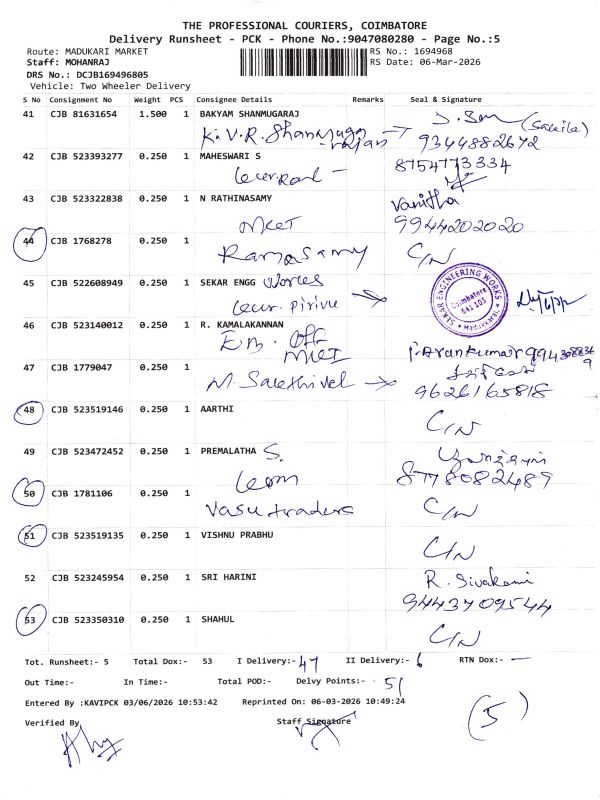 THE PROFESSIONAL COURIERS, COIMBATORE
Delivery Runsheet - PCK - Phone No.:9047080280 - Page No.:5
Route: MADUKARI MARKET
RS No.: 1694968
Staff: MOHANRAJ
RS Date: 06-Mar-2026
DRS No.: DCJB169496805
Vehicle: Two Wheeler Delivery
S No Consignment No Weight PCS Consignee Details Remarks Seal & Signature
41 CJB 81631654 1.500 1 BAKYAM SHANMUGARAJ
K.V.R. Shanmuga rajan (Sakila)
9344882672
42 CJB 523393277 0.250 1 MAHESWARI S 8754773334
43 CJB 523322838 0.250 1 N RATHINASAMY Vanitha
MKET 9944202020
44 CJB 1768278 0.250 1
Ramasamy C/N
45 CJB 522608949 0.250 1 SEKAR ENGG Works
pirivu
SEKAR ENGINEERING WORKS
Coimbatore
641 105
46 CJB 523140012 0.250 1 R. KAMALAKANNAN
EB. Off
MKET
P. Arunkumar
47 CJB 1779047 0.250 1
M. Sakthivel 9626165818
48 CJB 523519146 0.250 1 AARTHI
C/N
49 CJB 523472452 0.250 1 PREMALATHA S.
8778082489
50 CJB 1781106 0.250 1
Vasu traders C/N
51 CJB 523519135 0.250 1 VISHNU PRABHU
C/N
52 CJB 523245954 0.250 1 SRI HARINI R. Sivakami
9443709544
53 CJB 523350310 0.250 1 SHAHUL
C/N
Tot. Runsheet:- 5 Total Dox:- 53 I Delivery:- 47 II Delivery:- 6 RTN Dox:- —
Out Time:- In Time:- Total POD:- Delvy Points:- 51
Entered By :KAVIPCK 03/06/2026 10:53:42 Reprinted On: 06-03-2026 10:49:24
(5)
Verified By Staff Signature